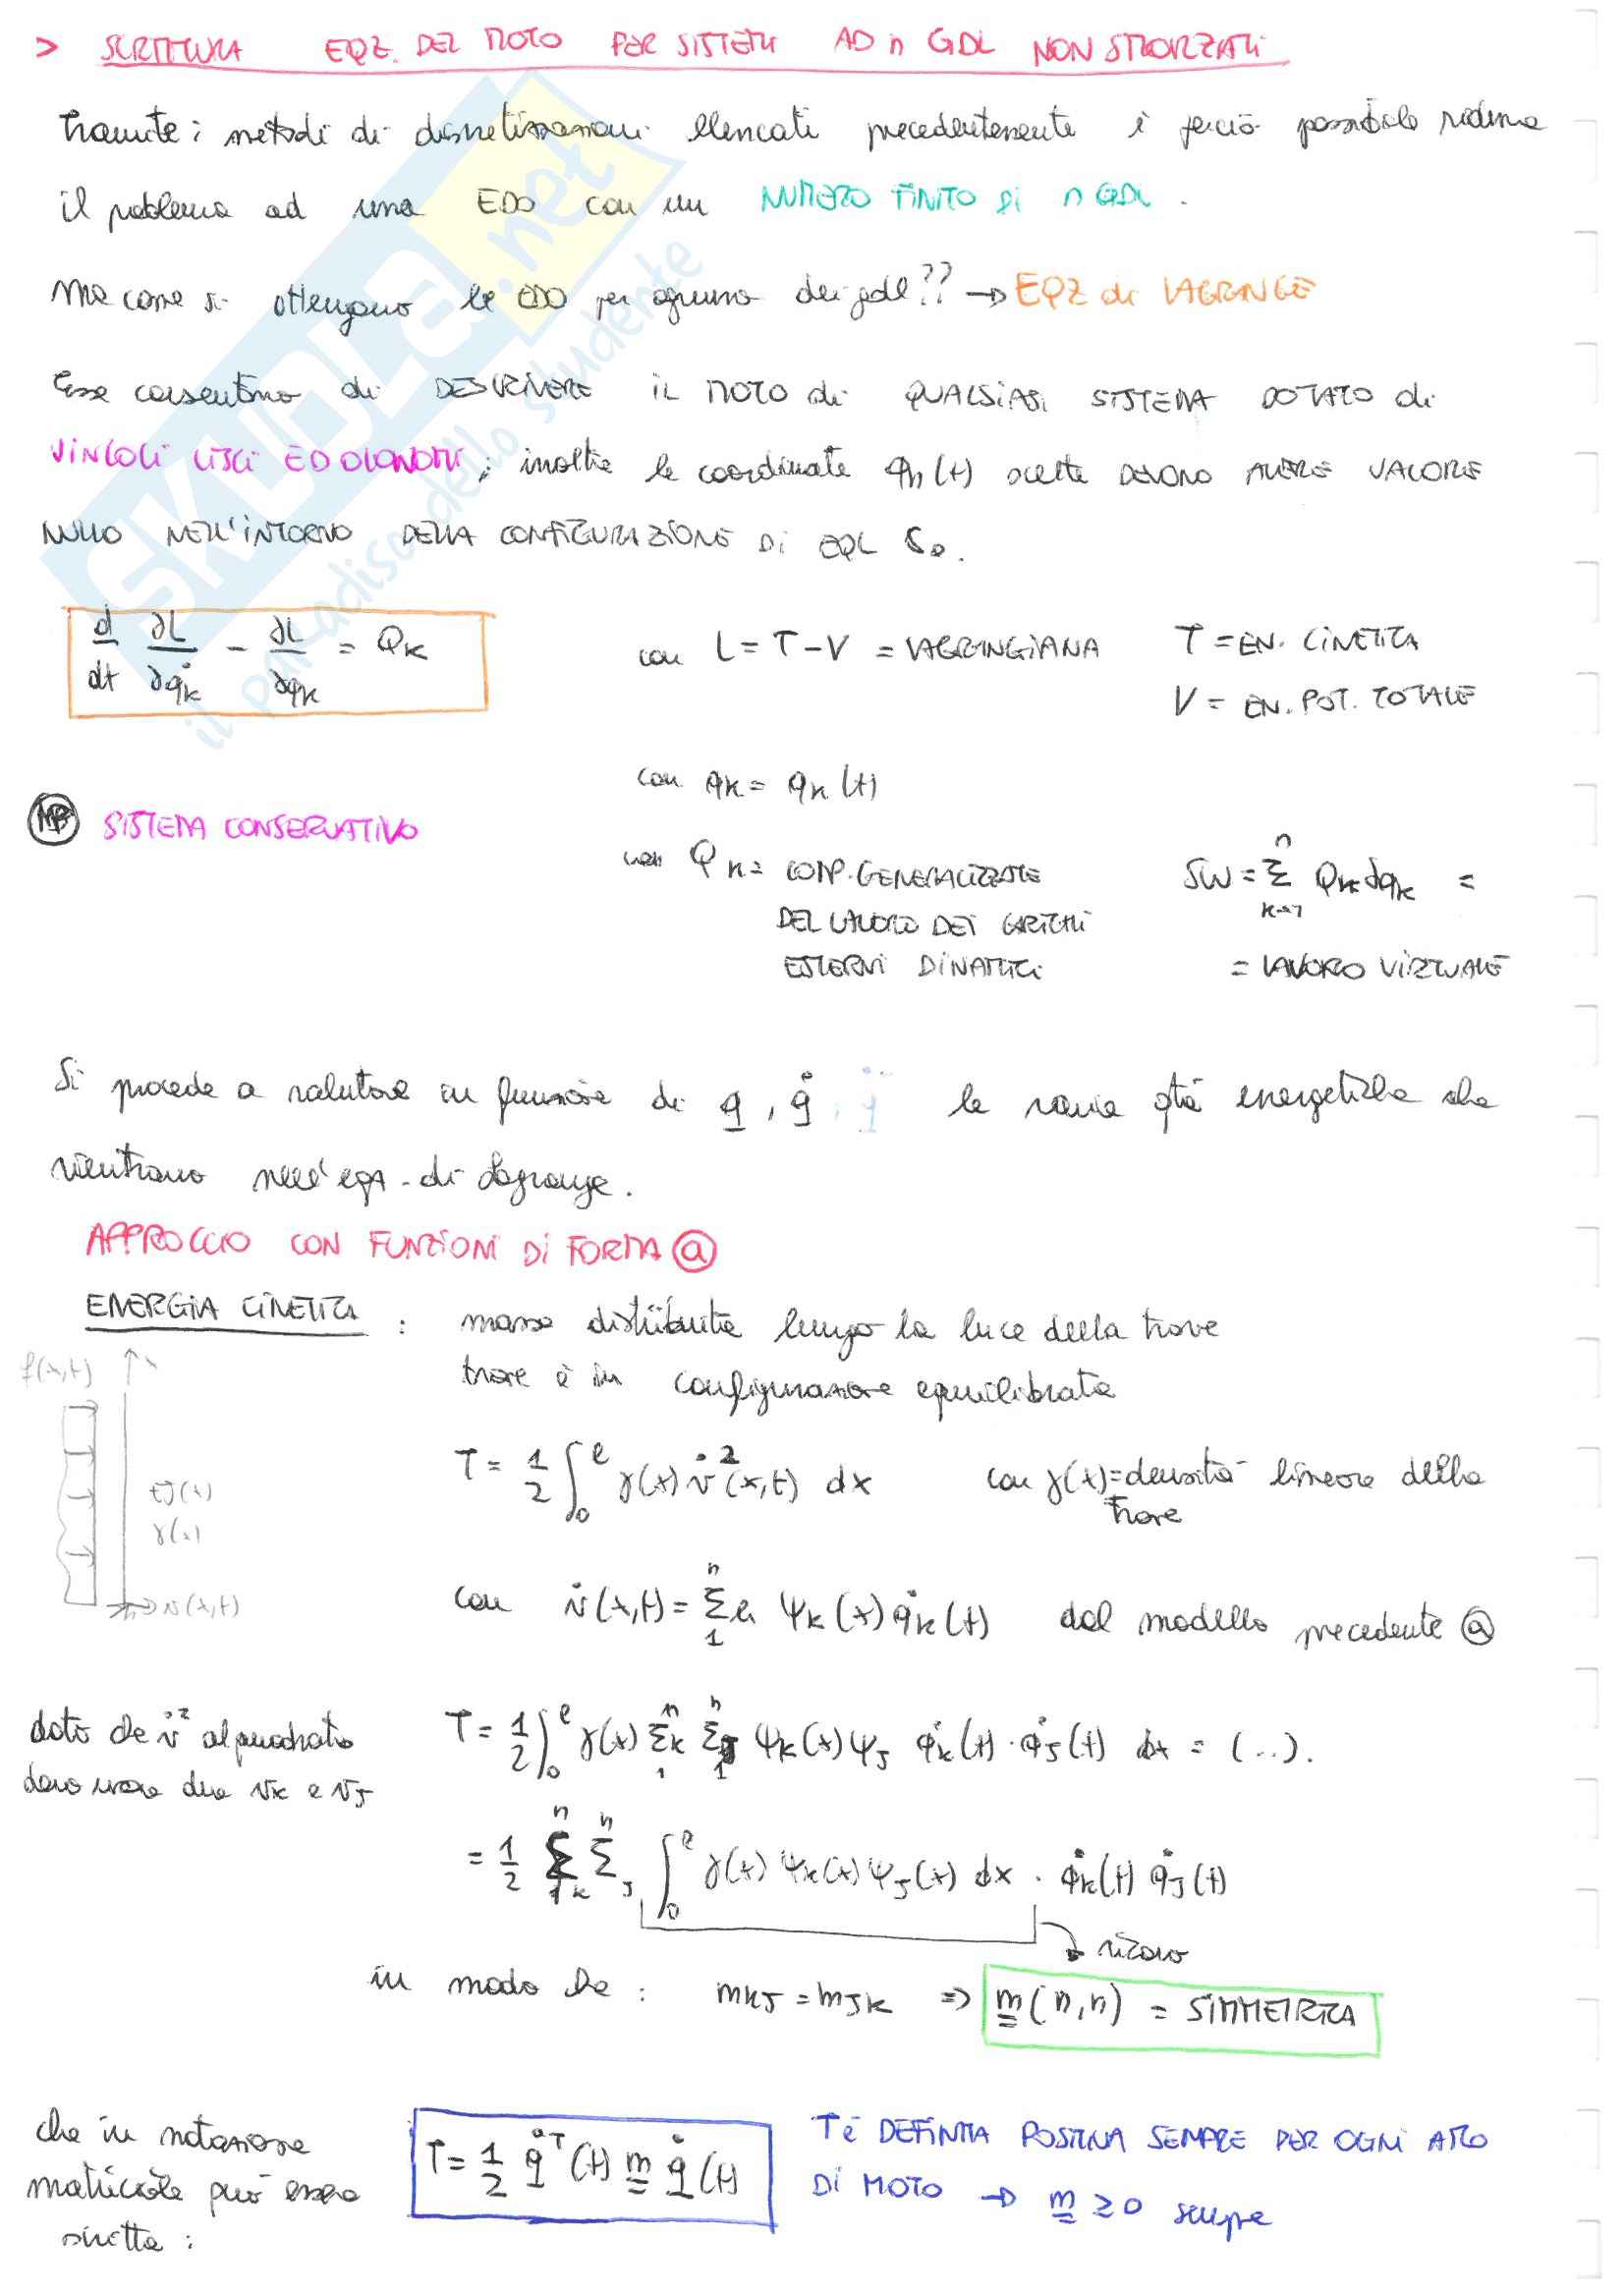 > SCRITTURA EQZ. DEL MOTO PER SISTEMI AD n GDL NON SMORZATI
Tramite i metodi di discretizzazioni elencati precedentemente è perciò possibile ridurre
il problema ad una EDO con un NUMERO FINITO DI n GDL.
Ma come si ottengono le EDO per ognuno dei gdl?? → EQZ di LAGRANGE
Esse consentono di DESCRIVERE IL MOTO di QUALSIASI SISTEMA DOTATO di
VINCOLI LISCI ED OLONOMI; inoltre le coordinate qn(t) scelte DEVONO AVERE VALORE
NULLO NELL'INTORNO DELLA CONFIGURAZIONE DI EQL So.
d/dt ∂L/∂q̇k - ∂L/∂qk = Qk con L = T-V = LAGRANGIANA T = EN. CINETICA
V = EN. POT. TOTALE
con qk = qk(t)
NB SISTEMA CONSERVATIVO
con Qk = COMP. GENERALIZZATE δW = Σ Qk δqk =
n
k=1
DEL LAVORO DEI CARICHI
ESTERNI DINAMICI = LAVORO VIRTUALE
Si procede a valutare in funzione di q, q̇, q̈ le varie qtà energetiche che
rientrano nell'eqz. di Lagrange.
APPROCCIO CON FUNZIONI DI FORMA ⓐ
ENERGIA CINETICA : massa distribuita lungo la luce della trave
trave è in configurazione equilibrata
f(x,t) x
T = 1/2 ∫₀ˡ γ(x) v̇²(x,t) dx con γ(x) = densità lineare della
trave
EJ(x)
γ(x)
v(x,t)
con v̇(x,t) = Σ₁ⁿk ψk(x) q̇k(t) dal modello precedente ⓐ
dato che v̇² al quadrato
devo usare due vk e vJ
T = 1/2 ∫₀ˡ γ(x) Σ₁ⁿk Σ₁ⁿJ ψk(x) ψJ q̇k(t) · q̇J(t) dx = (...).
= 1/2 Σ₁ⁿk ΣⁿJ ∫₀ˡ γ(x) ψk(x) ψJ(x) dx · q̇k(t) q̇J(t)
ricavo
in modo che : mkJ = mJk ⇒ m(n,n) = SIMMETRICA
che in notazione
matriciale può essere
scritta :
T = 1/2 q̇ᵀ(t) m q̇(t)
T è DEFINITA POSITIVA SEMPRE PER OGNI ATTO
DI MOTO → m ≥ 0 sempre
SKUOLA.net
il paradiso dello studente